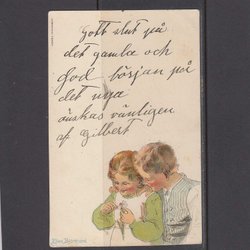 Gott slut på
det gamla och
god början på
det nya
önskas vänligen
af Gilbert